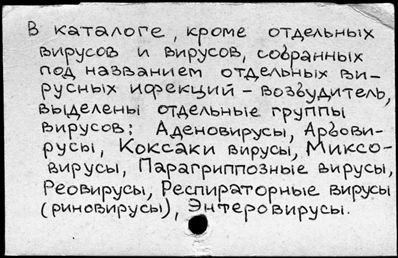 В каталоге, кроме отдельных
вирусов и вирусов, собранных
под названием отдельных ви-
русных инфекций - возбудитель,
выделены отдельные группы
вирусов: Аденовирусы, Арбови-
русы, Коксаки вирусы, Миксо-
вирусы, Парагриппозные вирусы,
Реовирусы, Респираторные вирусы
(риновирусы), Энтеровирусы.